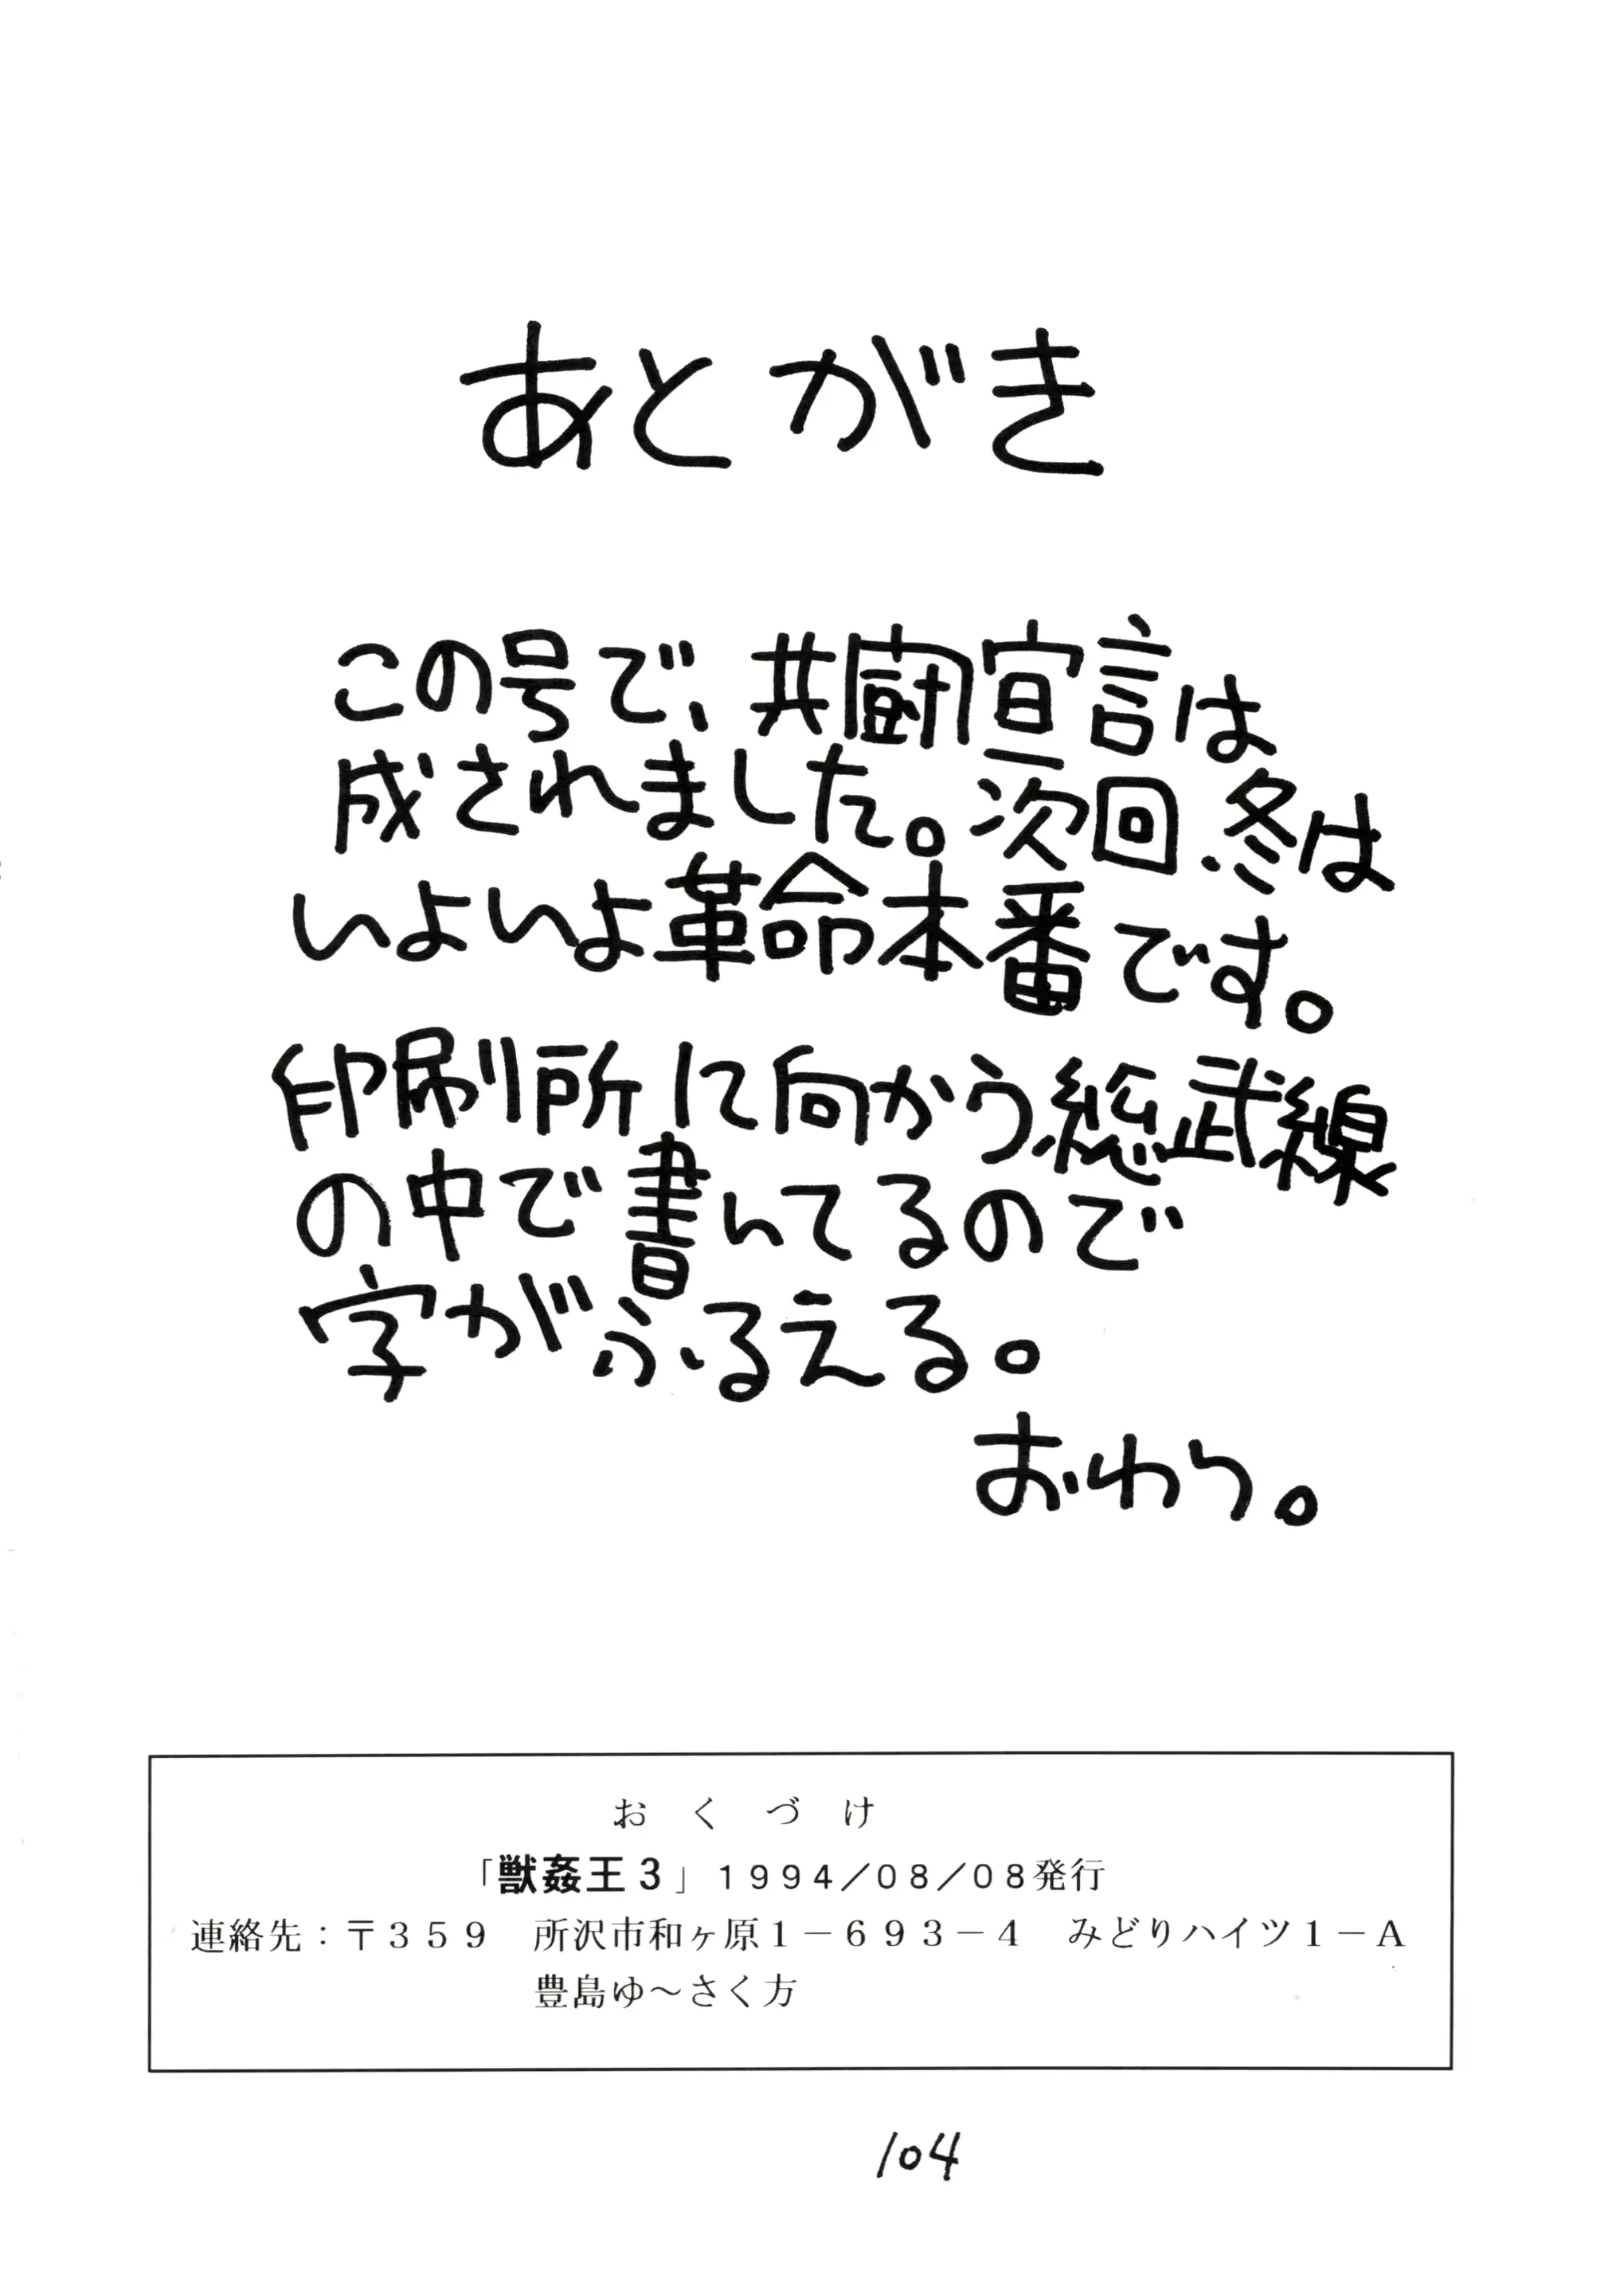 あとがき
この号で、共闘宣言は
成されました。次回、冬は
いよいよ革命本番です。
印刷所に向かう総武線
の中で書いてるので
字がふるえる。
おわり。
おくづけ
「獣姦王3」1994/08/08発行
連絡先:〒359 所沢市和ヶ原1-693-4 みどりハイツ1-A
豊島ゆ～さく方
104